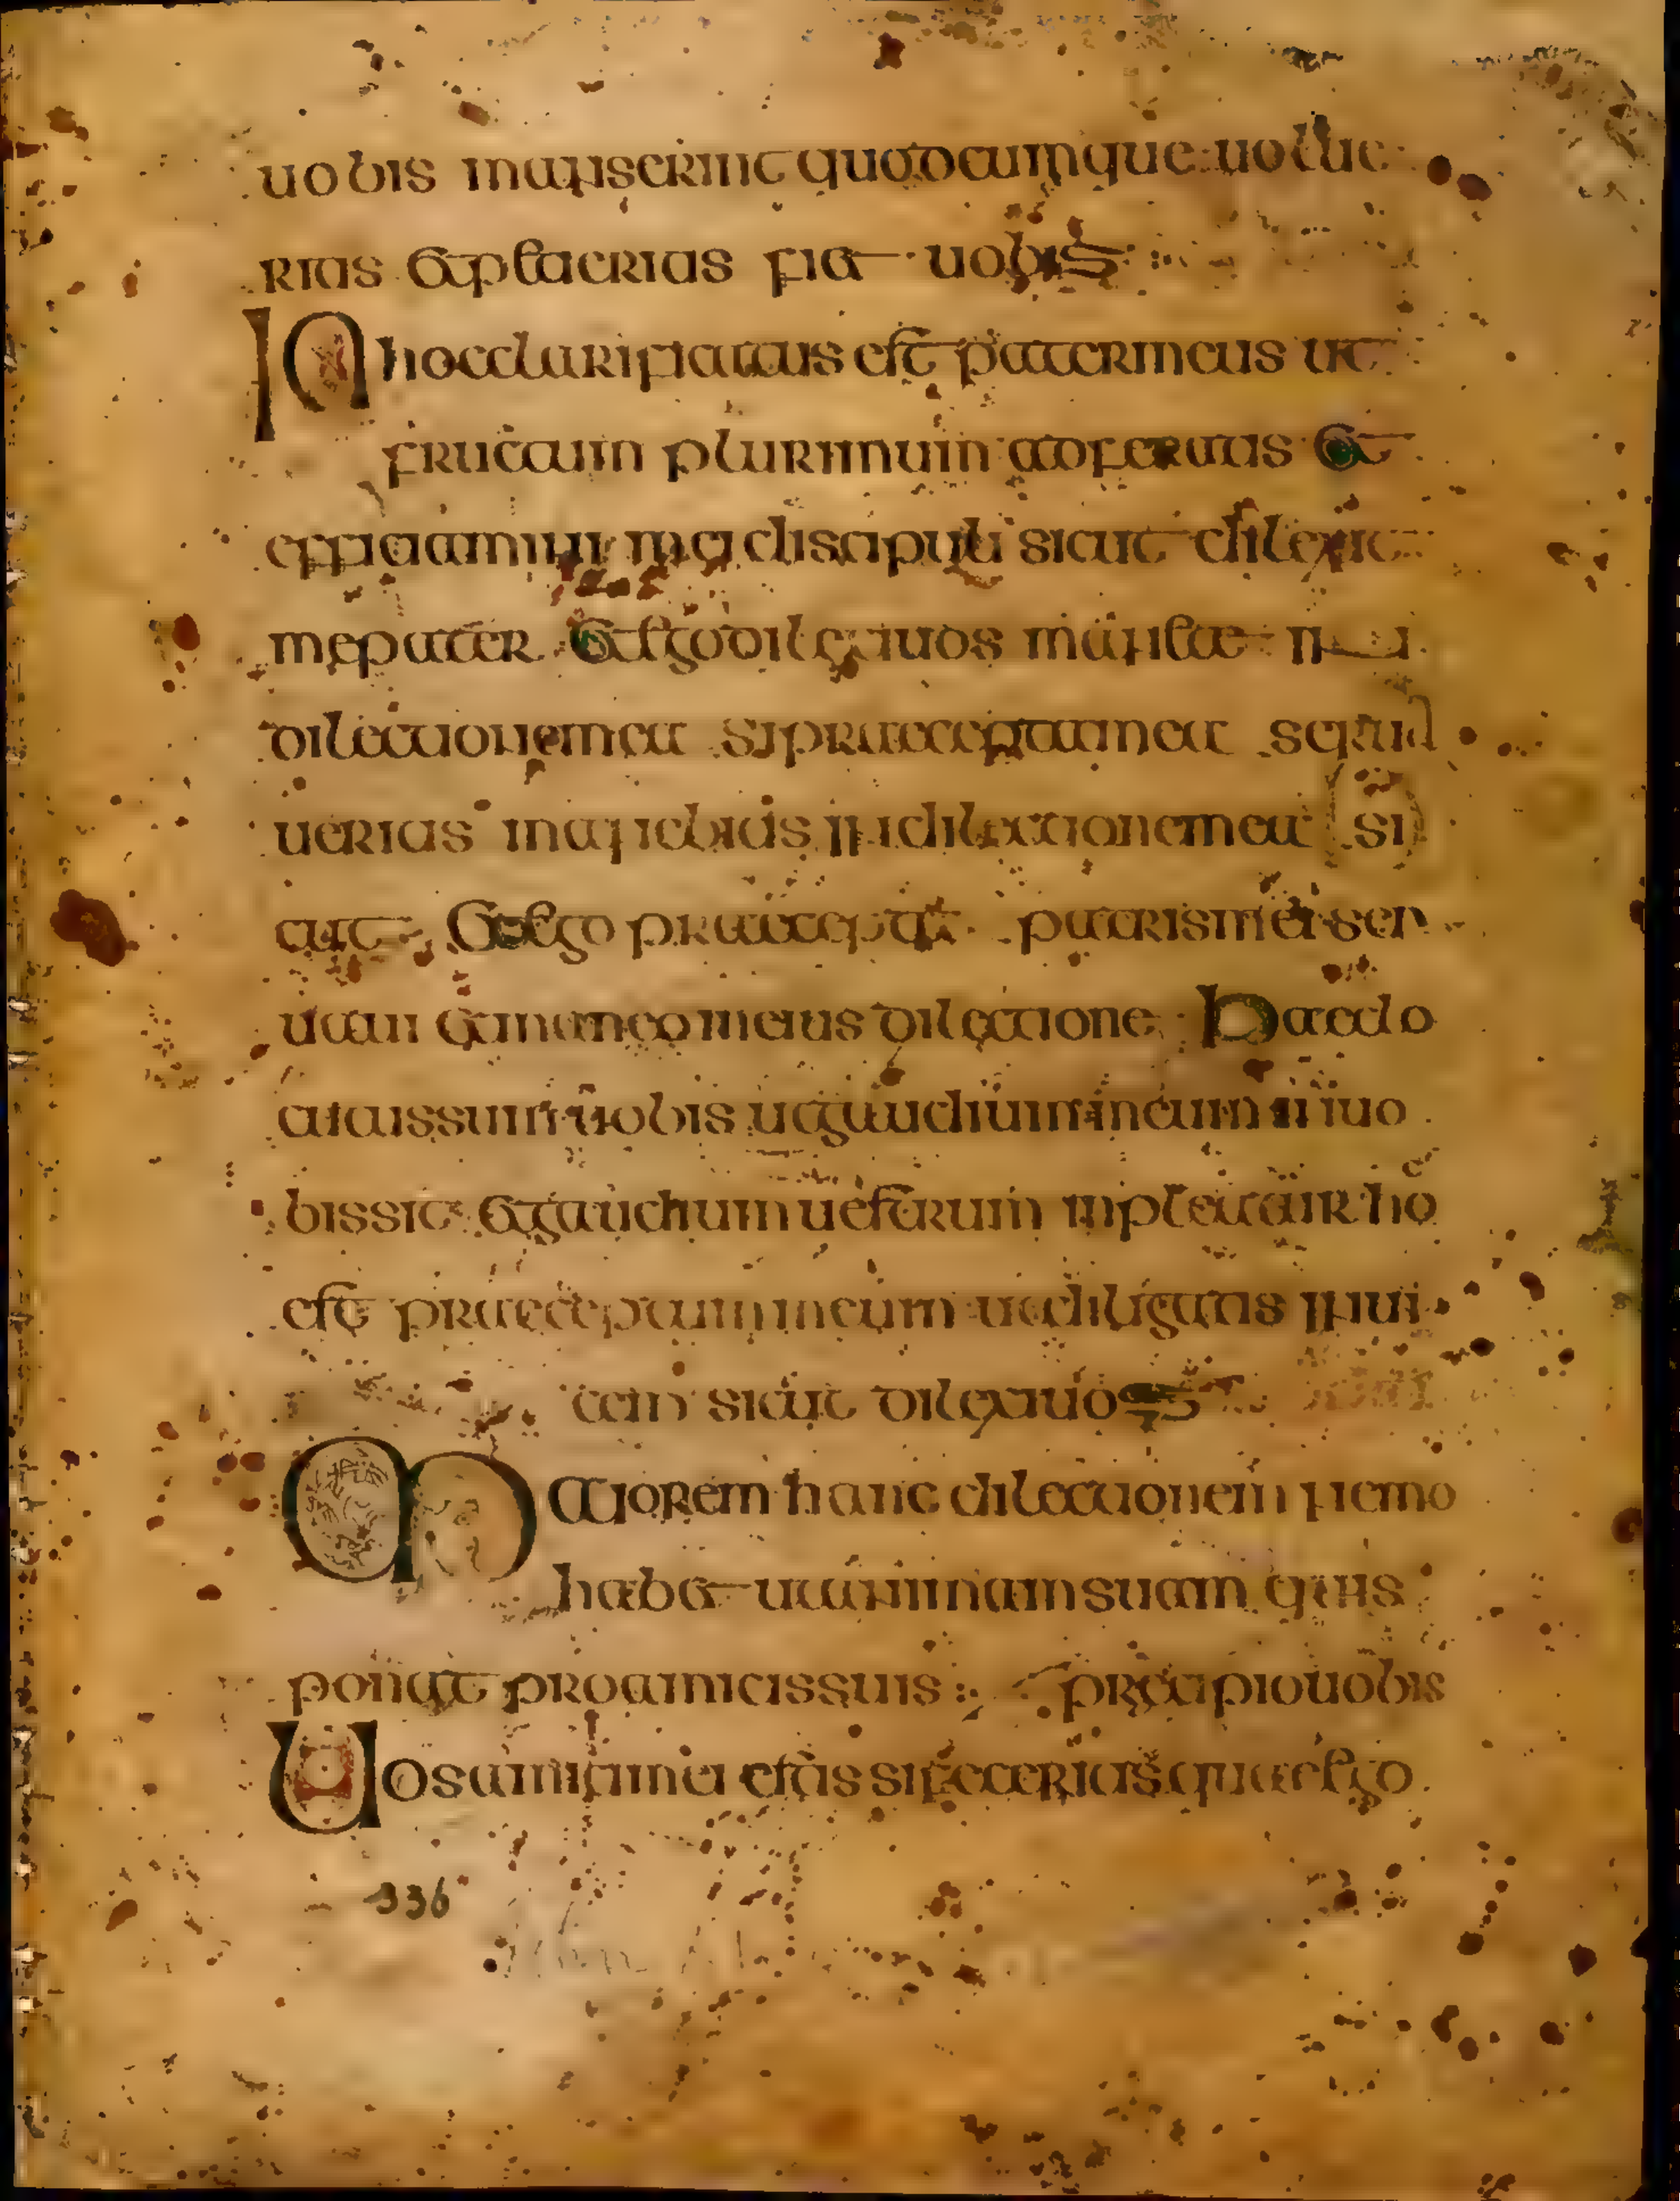 uobis manserint quodcumque uolue
ritis et petieritis fiet uobis
IN hoc clarificatus est pater meus ut
fructum plurimum adferatis et
efficiamini mei discipuli sicut dilexit
me pater et ego dilexi uos manete
dilectione mea si praecepta mea seruа
ueritis manebitis in dilectione mea si
cut et ego praecepta patris mei ser
uaui et maneo in eius dilectione Haec lo
cutus sum uobis ut gaudium meum in uo
bis sit et gaudium uestrum impleatur ho
est praeceptum meum ut diligatis inui
cem sicut dilexi uos
Maiorem hanc dilectionem nemo
habet ut animam suam quis
ponat pro amicis suis praecipio uobis
Uos amici mei estis si feceritis quae ego
336